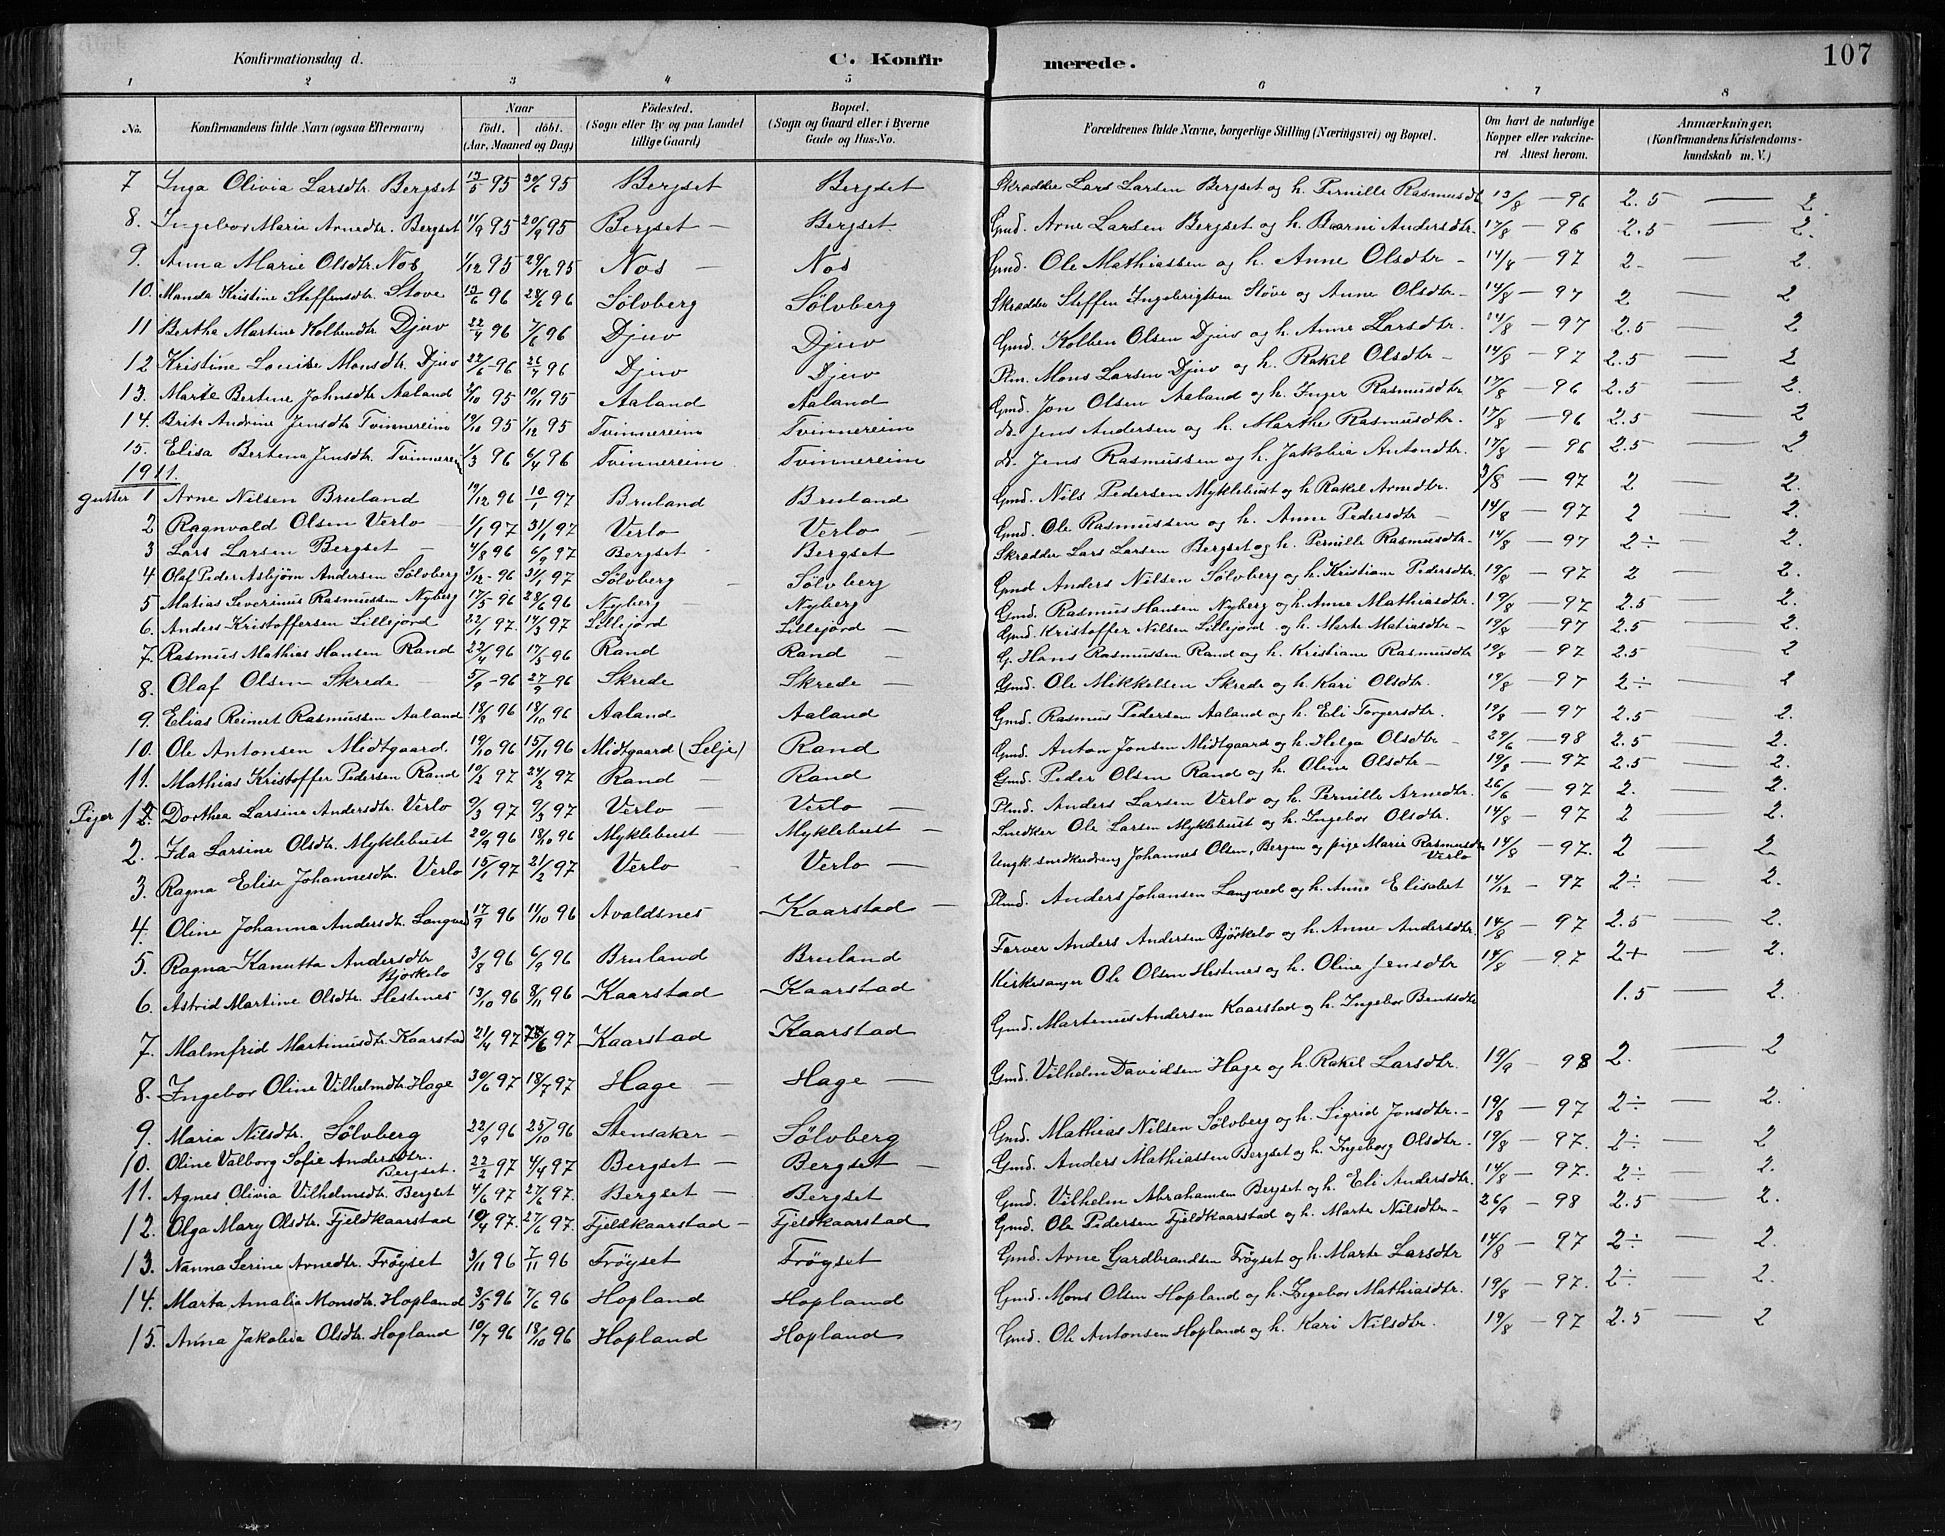 Konfirmationsdag d. C. Konfirmerede. 107
1 2 3 4 5 6 7 8
No. Konfirmandens fulde Navn (ogsaa Efternavn) Naar født. døbt. (Aar, Maaned og Dag) Fødested. (Sogn eller By og paa Landet tillige Gaard) Bopæl. (Sogn og Gaard eller i Byerne Gade og Hus-No. Forældrenes fulde Navne, borgerlige Stilling (Næringsvei) og Bopæl. Om havt de naturlige Kopper eller vakcineret Attest herom. Anmærkninger, (Konfirmandens Kristendomskundskab m. V.)
7 Inga Olivia Larsdtr. Bergset 13/5 95 30/6 95 Bergset Bergset Skrædder Lars Larsen Bergset og h. Pernille Rasmusdt. 13/8 — 96 2.5 — 2.
8. Ingebor Marie Arnedtr. Bergset 11/9 95 20/9 95 Bergset — Bergset Gmd. Arne Larsen Bergset og h. Baarni Andersdtr. 17/8 — 96 2.5 — 2.
9. Anna Marie Olsdtr. Nos 1/12 95 29/12 95 Nos — Nos Gmd. Ole Mathiassen og h. Anne Olsdtr — 14/8 — 97 2 — 2.
10. Manda Kristine Steffensdtr. Støve 13/6 96 28/6 96 Sølvberg Sølvberg Skrædder Steffen Ingebrigtsen Støve og Anne Olsdtr — 14/8 — 97 2 — 2
11 Bertha Martine Kolbendtr Djuv 22/4 96 7/6 96 Djuv Djuv Gmd. Kolben Olsen Djuv og h. Anne Larsdtr. 24/8 — 97 2.5 — 2
12 Kristine Louise Monsdtr. Djuv 22/6 96 26/7 96 Djuv Djuv Plm. Mons Larsen Djuv og h. Rakel Olsdtr — 14/8 — 97 2.5 — 2
13. Marte Bertine Johnsdtr Aaland 2/10 95 10/11 95 Aaland Aaland Gmd. Jon Olsen Aaland og h. Inger Rasmusdtr. 17/8 — 96 2.5 — 2.
14. Brite Andrine Jensdtr Tvinnereim 19/10 95 1/12 95 Tvinnereim Tvinnereim do. Jens Andersen og h. Marthe Rasmusdtr. 17/8 — 96 2.5 — 2
15. Elisa Bertina Jensdtr. Tvinnereim 1/3 96 6/4 96 Tvinnereim Tvinnereim do. Jens Rasmussen og h. Jakobia Antondtr. 17/8 — 96 2.5 — 2
1911.
gutter 1 Arne Nilsen Bruland 19/12 96 10/1 97 Bruland Bruland Gmd. Nils Pedersen Myklebust og h. Rakel Arnedtr. 3/8 — 97 2 — 2.
2 Ragnvald Olsen Verlo 1/1 97 31/1 97 Verlo Verlo — Gmd. Ole Rasmussen og h. Anne Pedersdtr — 14/8 — 97 2 — 2.
3 Lars Larsen Bergset 4/8 96 6/9 97 Bergset Bergset Skrædder Lars Larsen Bergset og h. Pernille Rasmusdtr. 14/8 — 97 2÷ — 2.
4 Olaf Peder Asbjørn Andersen Sølvberg 3/12 96 31/1 97 Sølvberg Sølvberg Gmd Anders Nilsen Sølvberg og h. Kristiane Pedersdtr. 19/8 — 97 2 — 2.
5 Matias Severinus Rasmussen Nyberg 17/5 96 28/6 96 Nyberg Nyberg Gmd. Rasmus Hansen Nyberg og h. Anne Mathiasdtr. 19/8 — 97 2.5 — 2.
6. Anders Kristoffersen Lillejord 22/1 97. 14/3 97 Lillejord Lillejord — Gmd. Kristoffer Nilsen Lillejord og h. Marte Matiasdtr — 19/8 — 97 2.5 — 2.
7. Rasmus Mathias Hansen Rand 22/4 96 17/5 96 Rand Rand — G. Hans Rasmussen Rand og h. Kristiane Rasmusdtr 19/8 — 97 2.5 — 2
8. Olaf Olsen Skrede 5/9 96 27/9 96 Skrede Skrede — Gmd. Ole Mikkelsen Skrede og h. Kari Olsdtr. 19/8 — 97 2÷ — 2
9. Elias Reinert Rasmussen Aaland 18/8 96 18/10 96 Aaland Aaland Gmd. Rasmus Pedersen Aaland og h. Eli Torgersdtr. 19/8 — 97 2.5 — 2.
10. Ole Antonsen Midtgaard. 19/10 96 15/11 96 Midtgaard (Selje) Rand Gmd. Anton Jonsen Midtgaard og h. Helga Olsdtr — 29/6 — 98 2.5 — 2.
11. Mathias Kristoffer Pedersen Rand 10/2 97 24/2 97 Rand — Rand Gmd. Peder Olsen Rand og h. Oline Olsdtr — 19/8 — 97 2.5 — 2.
Piger 1 Dorthea Larsine Andersdtr. Verlo 9/3 97 9/3 97 Verlo — Verlo — Plmd. Anders Larsen Verlo og h. Pernille Arnedtr. 26/6 — 97 2. — 2.
2. Ida Larsine Olsdtr. Myklebust 20/9 96 18/10 96 Myklebust — Myklebust — Snedker Ole Larsen Myklebust og h. Ingebor Olsdtr. 14/8 — 97 2 — 2.
3. Ragna Elise Johannesdtr. Verlo 15/1 97 21/2 97 Verlo — Verlo — Ungk. snedkerdreng Johannes Olsen, Bergen og pige Marie Rasmusdtr Verlo 14/8 — 97. 2 — 2
4. Oline Johanna Andersdtr. Langved 17/9 96 11/10 96 Avaldsnes Kaarstad — Plmd. Anders Johansen Langved og h. Anne Elisabet 14/12 — 97 2÷ — 2.
5. Ragna Kanutta Andersdtr Bjørkelo 3/8 96 6/9 96 Bruland Bruland Farver Anders Andersen Bjørkelo og h. Anne Andersdtr. 14/8 — 97 2.5 — 2.
6. Astrid Martine Olsdtr. Hestenes 13/10 96 8/11 96 Kaarstad Kaarstad Kirkesanger Ole Olsen Hestenes og h. Oline Jensdtr 14/8 — 97 2+ — 2.
7. Malmfrid Martinusdtr. Kaarstad 21/4 97 /6 97 Kaarstad Kaarstad Gmd. Martinus Andersen Kaarstad og h. Ingebor Bentsdtr 1.5 — 2.
8. Ingebor Oline Vilhelmdtr. Hage 30/6 97 18/7 97 Hage — Hage — Gmd. Vilhelm Davidsen Hage og h. Rakel Larsdtr. 19/9 — 98 2. — 2
9. Maria Nilsdtr. Sølvberg 22/9 96 25/10 96 Stensaker — Sølvberg Gmd. Mathias Nilsen Sølvberg og h. Sigrid Jonsdtr. — 19/8 — 97 2÷ — 2.
10. Oline Valborg Sofie Andersdtr. Bergset. 22/2 97 4/4 97 Bergset — Bergset — Gmd. Anders Mathiassen Bergset og h. Ingeborg Olsdtr. 19/8 — 97. 2÷ — 2
11. Agnes Olivia Vilhelmsdtr. Bergset 4/6 97 27/6 97. Bergset — Bergset Gmd. Vilhelm Abrahamsen Bergset og h. Eli Andersdtr. 14/8 — 97. 2÷ — 2.
12. Olga Mary Olsdtr. Fjeldkaarstad 10/4 97. 27/6 97. Fjeldkaarstad — Fjeldkaarstad Gmd. Ole Pedersen Fjeldkaarstad og h. Marte Nilsdtr — 26/9 — 98 2.5 — 2.
13. Nanna Serine Arnedtr. Frøyset 3/11 96 7/11 96 Frøyset Frøyset Gmd. Arne Gardbrandsen Frøyset og h. Marte Larsdtr 14/8 — 97 2÷ — 2.
14. Marta Amalia Monsdtr. Hopland 3/5 96 7/6 96 Hopland Hopland Gmd. Mons Olsen Hopland og h. Ingebor Mathiasdtr. 19/8 — 97. 2÷ — 2
15. Anna Jakobia Olsdtr. Hopland 10/7 96 18/10 96 Hopland Hopland Gmd. Ole Antonsen Hopland og h. Kari Nilsdtr. 19/8 — 97 2.5 — 2